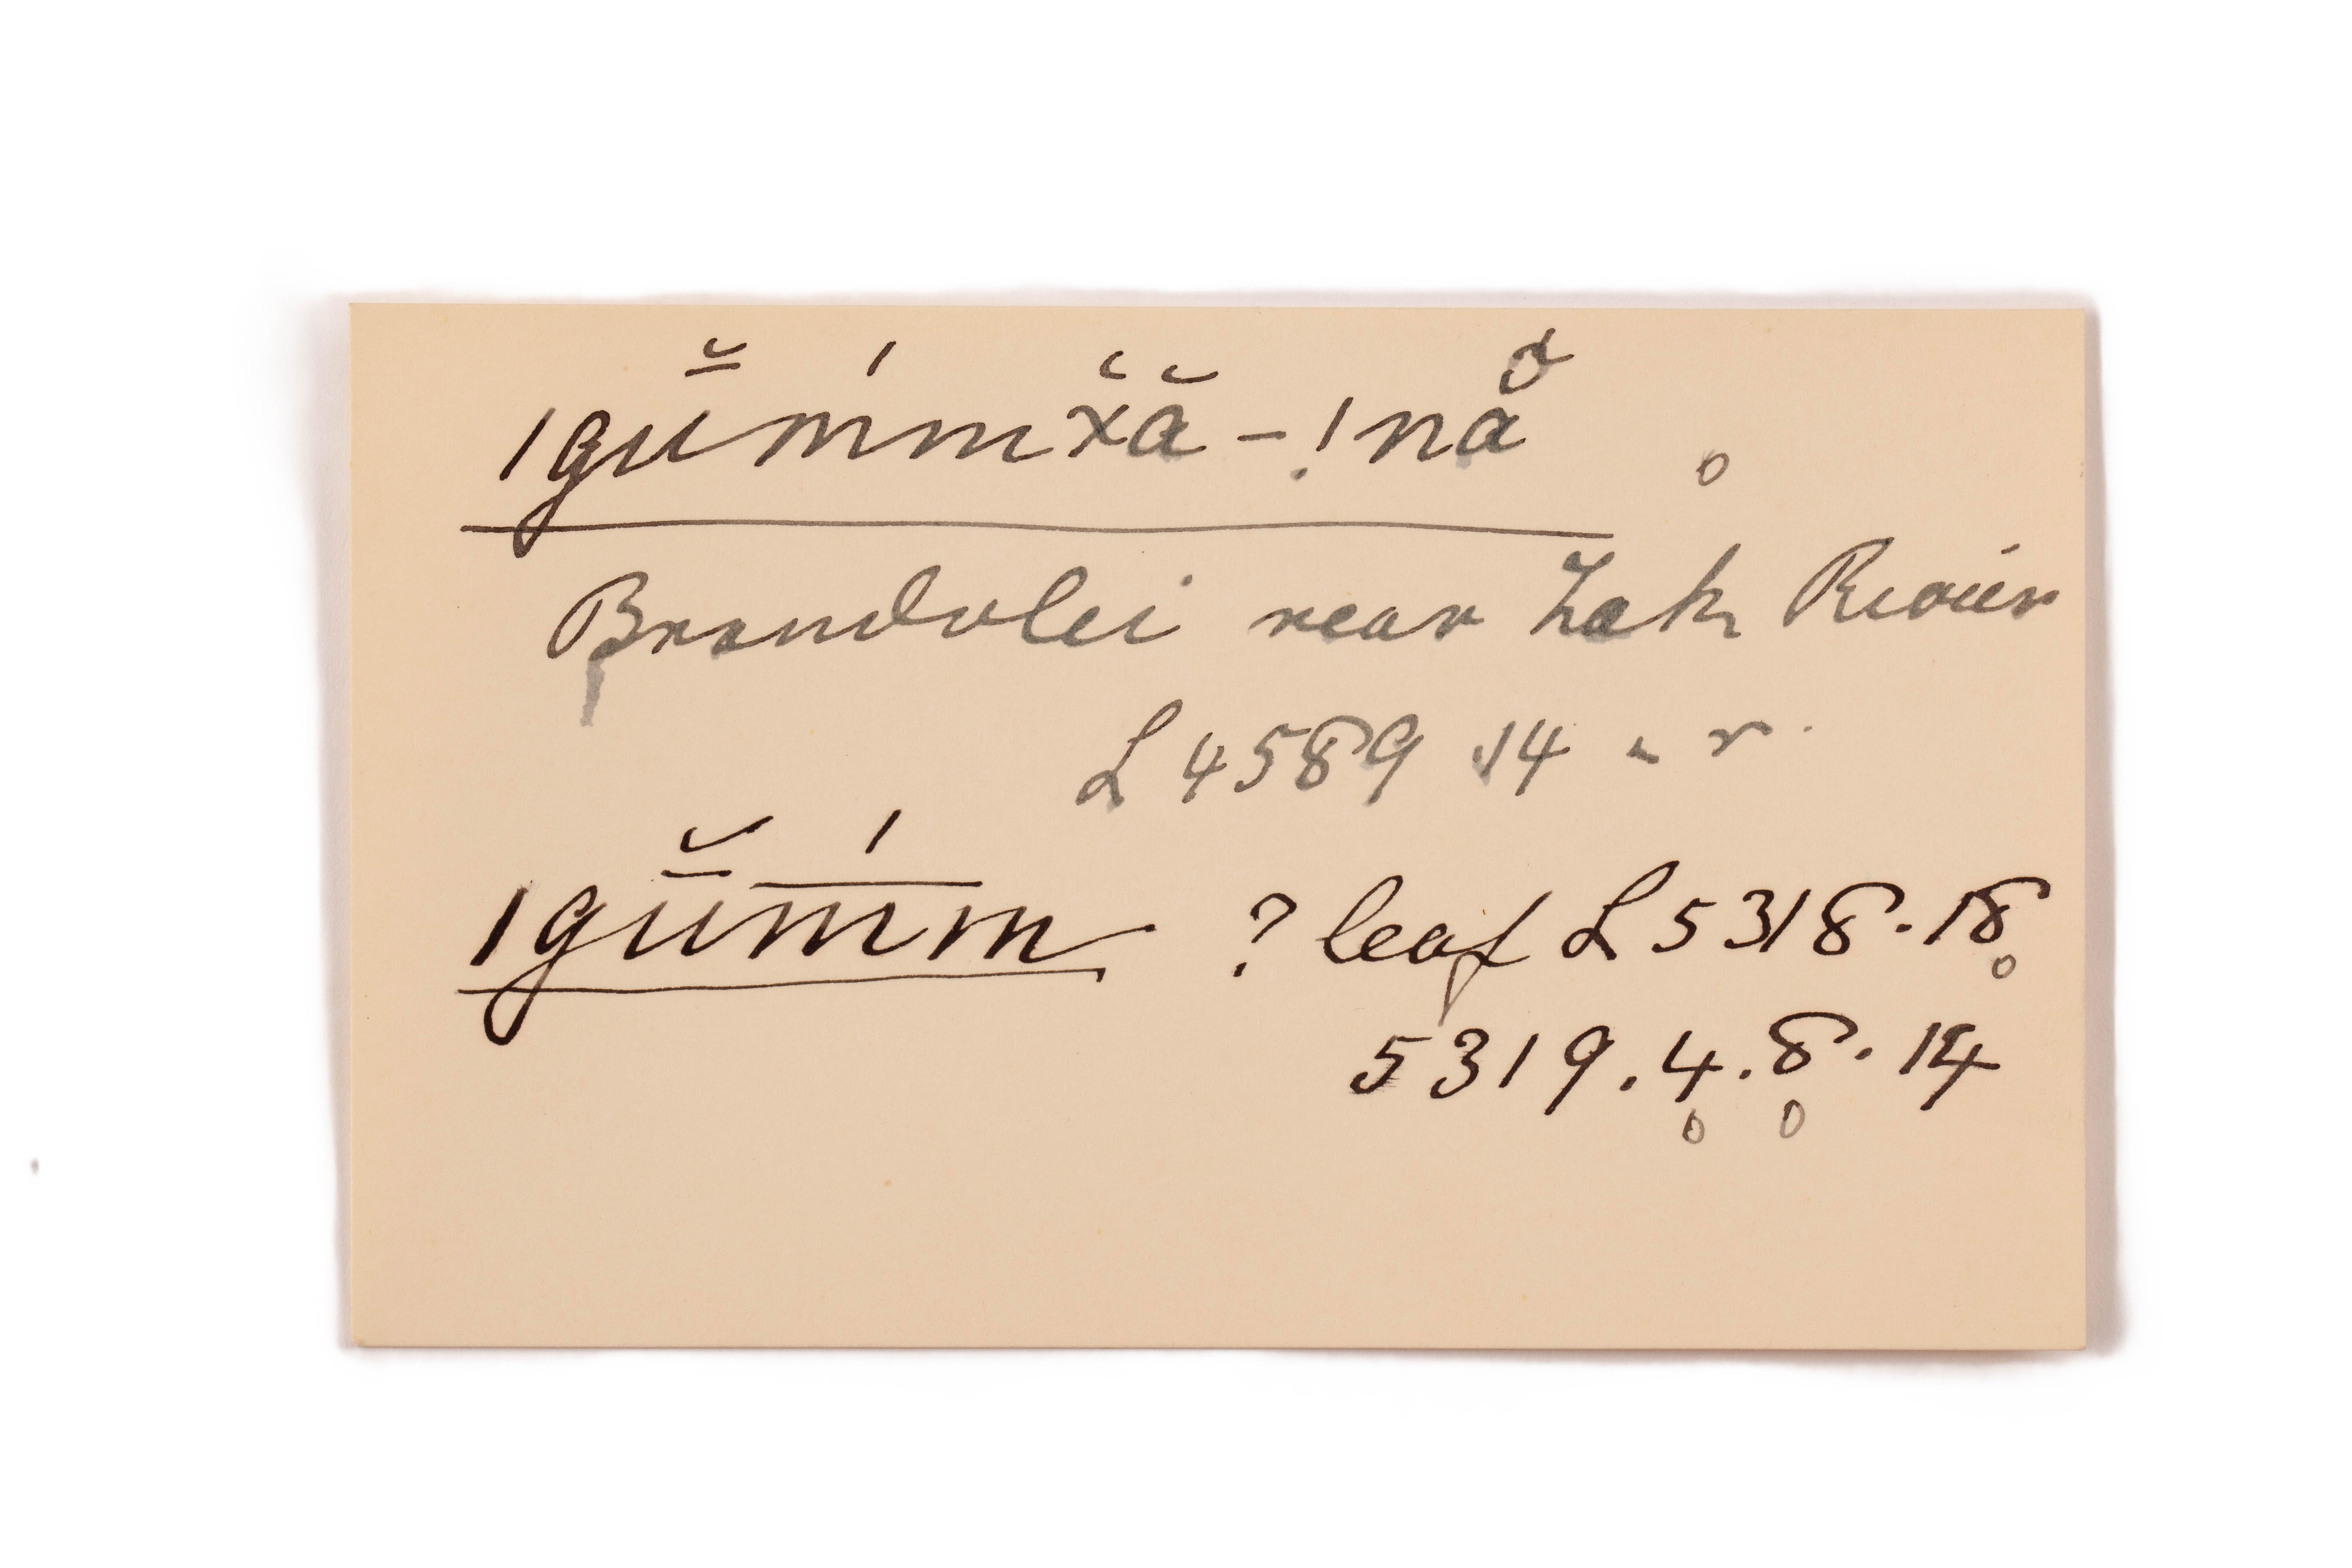 |gṵ̄̆ḿmx̆ă-!nă
Brandvlei near Zak Rivier
L 4589 14 " r.
|gŭ̄m̄́m ? leaf L 5318.18
5319.4.8.14